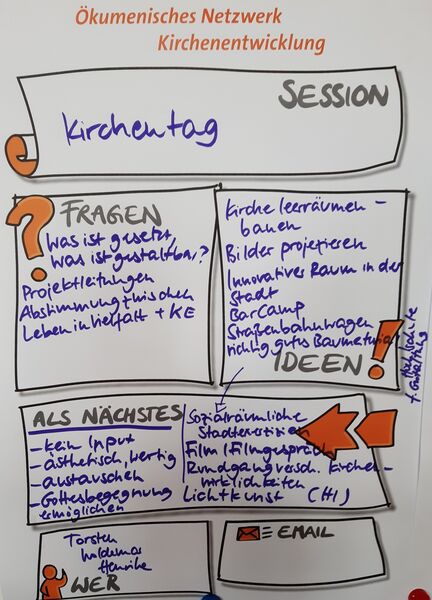 Ökumenisches Netzwerk
Kirchenentwicklung
SESSION
Kirchentag
FRAGEN
Was ist gesetzt,
was ist gestaltbar?
Projektleitungen
Abstimmung zwischen
Leben in Vielfalt + KE
Kirche leerräumen -
bauen
Bilder projizieren
Innovativer Raum in der
Stadt
BarCamp
Straßenbahnwagen
richtig gutes Baumaterial
IDEEN
ALS NÄCHSTES
- kein Input
- ästhetisch, wertig
- austauschen
- Gottesbegegnung
ermöglichen
Sozialräumliche
Stadtexerzitien
Film / Filmgespräch
Rundgang versch. Kirchen-
wirklichkeiten
Lichtkunst (HI)
Torsten
Woldemar
Henrike
WER
EMAIL